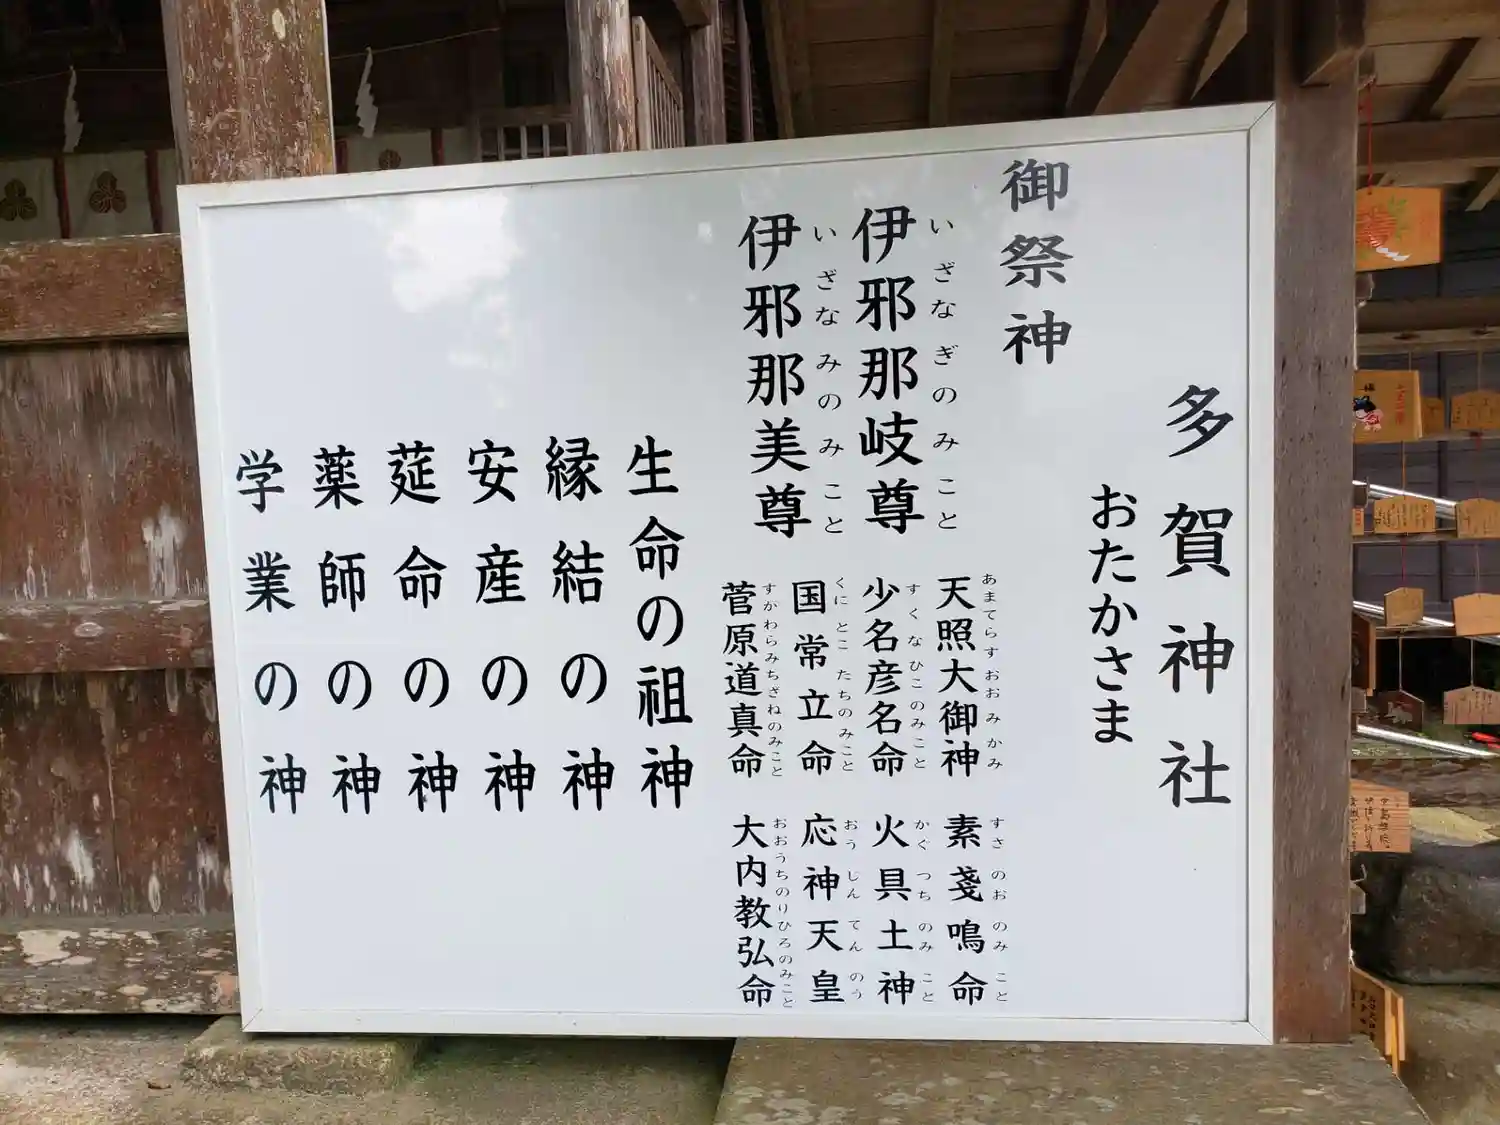 多賀神社
おたかさま
御祭神
伊邪那岐尊
いざなぎのみこと
伊邪那美尊
いざなみのみこと
天照大御神
あまてらすおおみかみ
少名彦名命
すくなひこのみこと
国常立命
くにとこたちのみこと
菅原道真命
すがわらみちざねのみこと
素戔鳴命
すさのおのみこと
火具土神
かぐつちのみこと
応神天皇
おうじんてんのう
大内教弘命
おおうちのりひろのみこと
生命の祖神
縁結の神
安産の神
莚命の神
薬師の神
学業の神